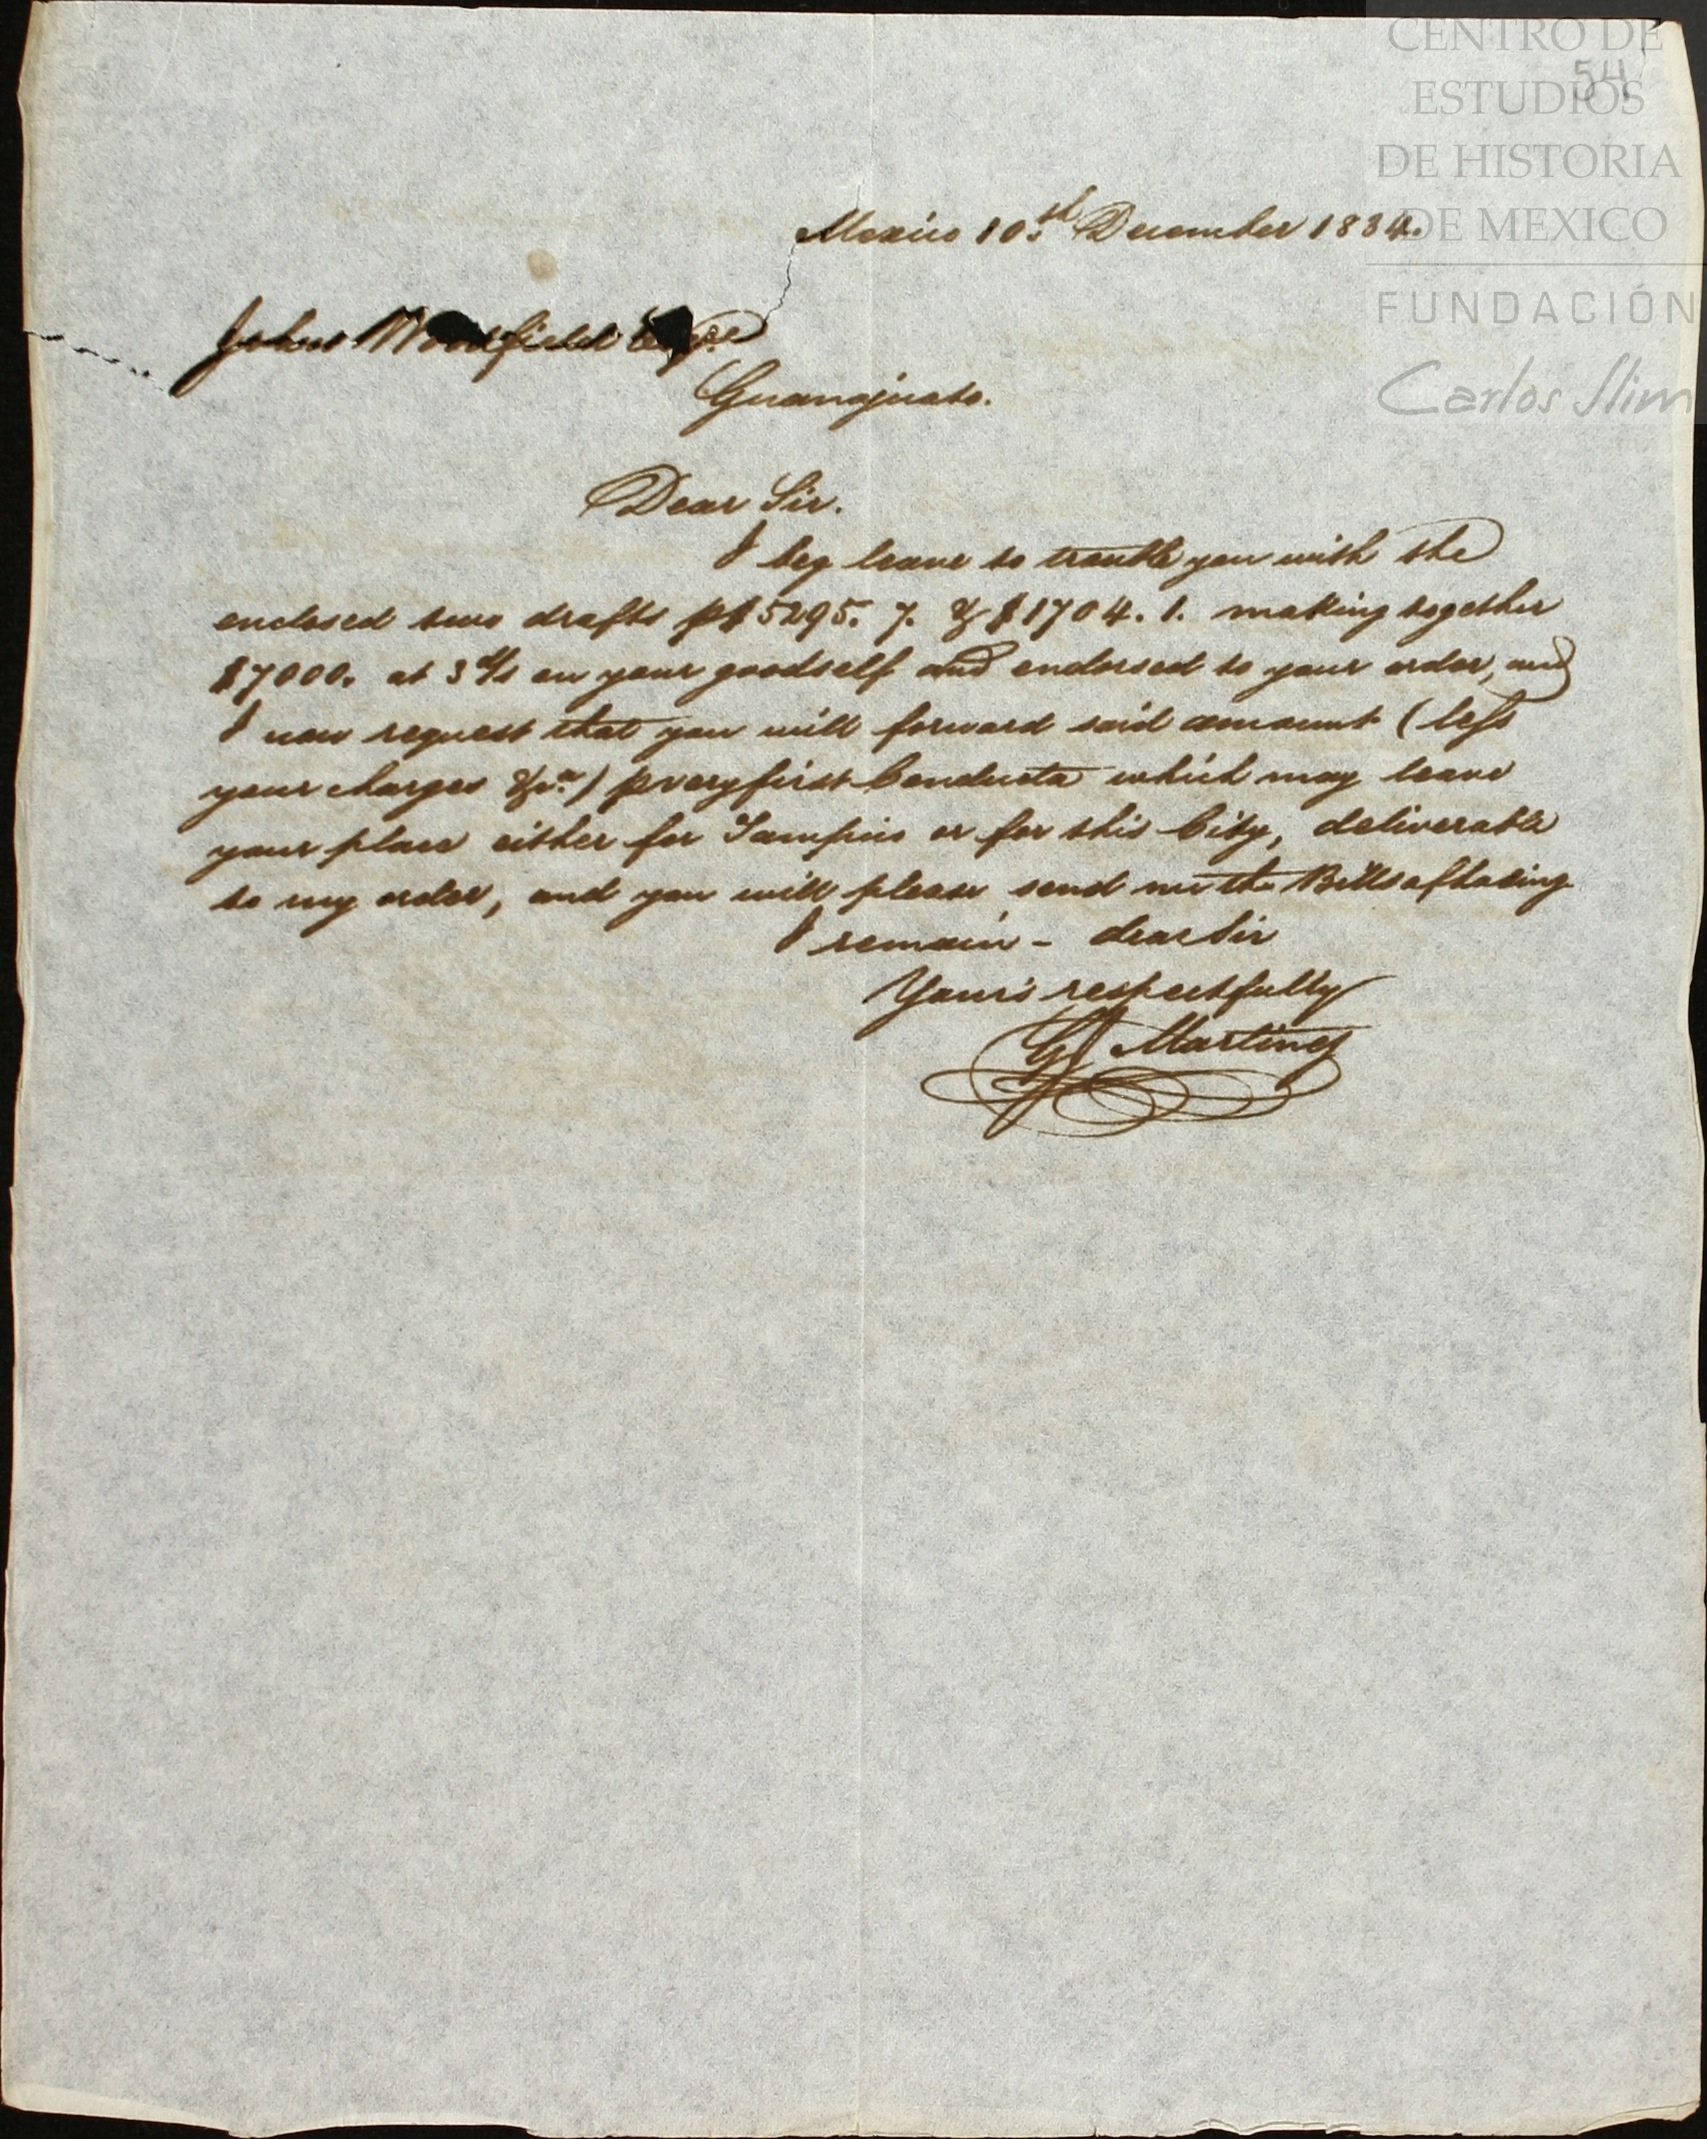 CENTRO DE
54
ESTUDIOS
DE HISTORIA
DE MEXICO
FUNDACIÓN
Carlos Slim
Mexico 10th December 1834.
John Woodfield Esqre
Guanajuato.
Dear Sir.
I beg leave to trouble you with the
enclosed two drafts p $5295. 7. & $1704. 1. making together
$7000. at 3 d/s on your goodself and endorsed to your order, and
I now request that you will forward said amount (less
your charges &ca) p very first Conducta which may leave
your place either for Tampico or for this City, deliverable
to my order, and you will please send me the Bills of lading
I remain - dear Sir
Your's respectfully
G Martinez